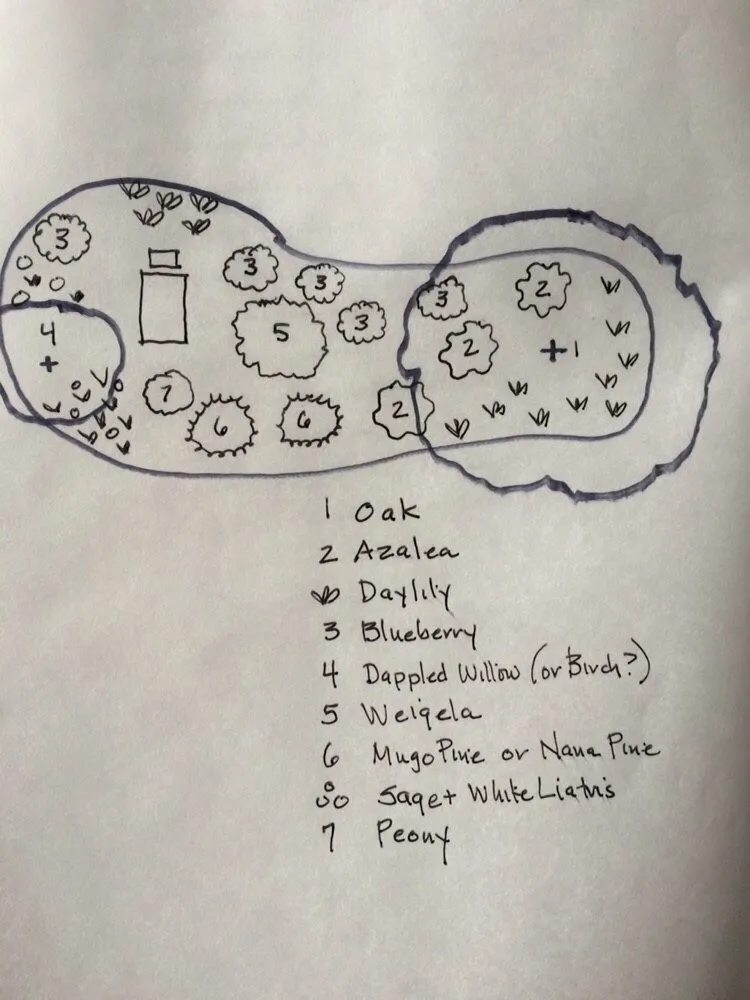 3
3
3
3
2
4
5
3
2
1
7
6
6
2
1 Oak
2 Azalea
Daylily
3 Blueberry
4 Dappled Willow (or Birch?)
5 Weigela
6 Mugo Pine or Nana Pine
Sage + White Liatris
7 Peony